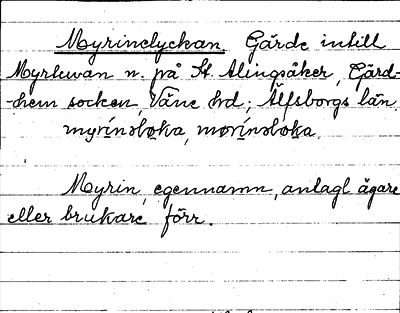 Myrinelyckan. Gärde intill
Myrluvan n. på St. Alingsåker, Gärd-
-hem socken, Väne hd; Älfsborgs län.
Myrin, egennamn, antagl ägare
eller brukare förr.